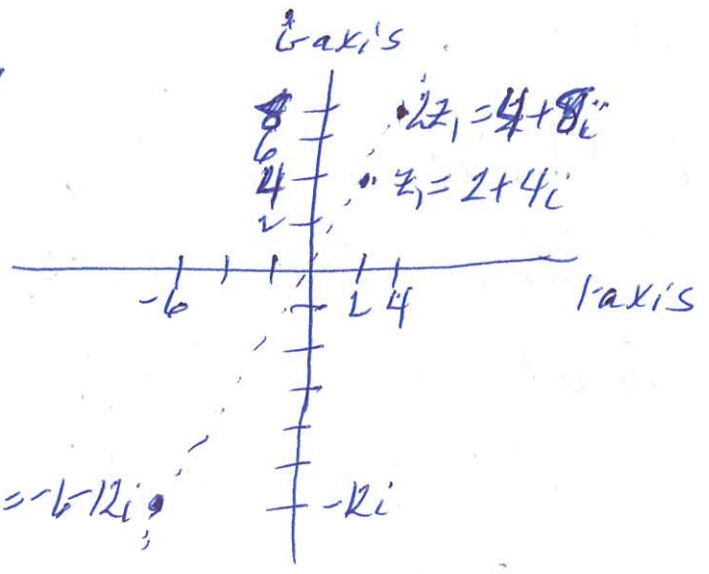 i-axis
8
2z₁ = 4+8i
6
4
z₁ = 2+4i
2
-6
2 4
1-axis
= -6-12i
-12i